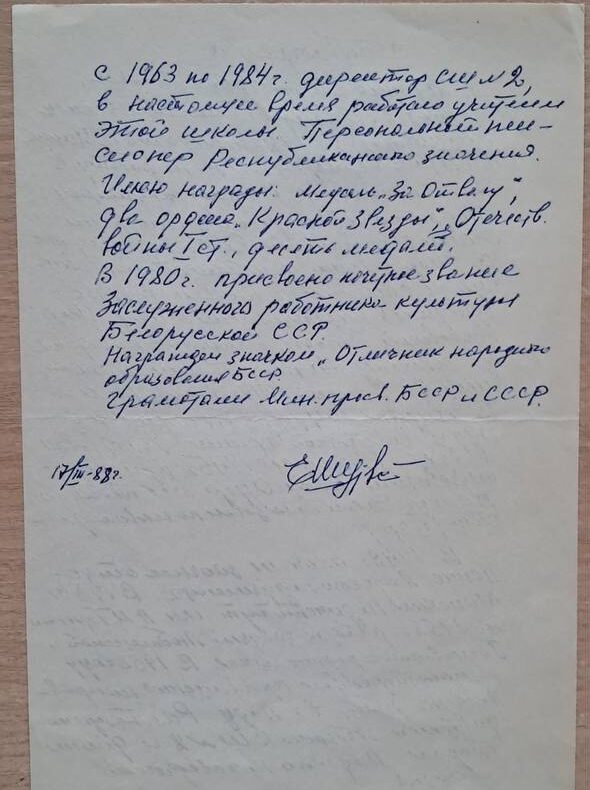 С 1963 по 1984г. директор СШ №2,
в настоящее время работаю учителем
этой школы. Персональный пен-
сионер Республиканского значения.
Имею награды: медаль „За Отвагу",
два ордена „Красной Звезды", Отечеств.
войны I ст., десять медалей.
В 1980г. присвоено почетное звание
Заслуженного работника культуры
Белорусской ССР.
Награжден значком „Отличник народного
образования БССР
грамотами Мин. просв. БССР и СССР.
17/III-88г.